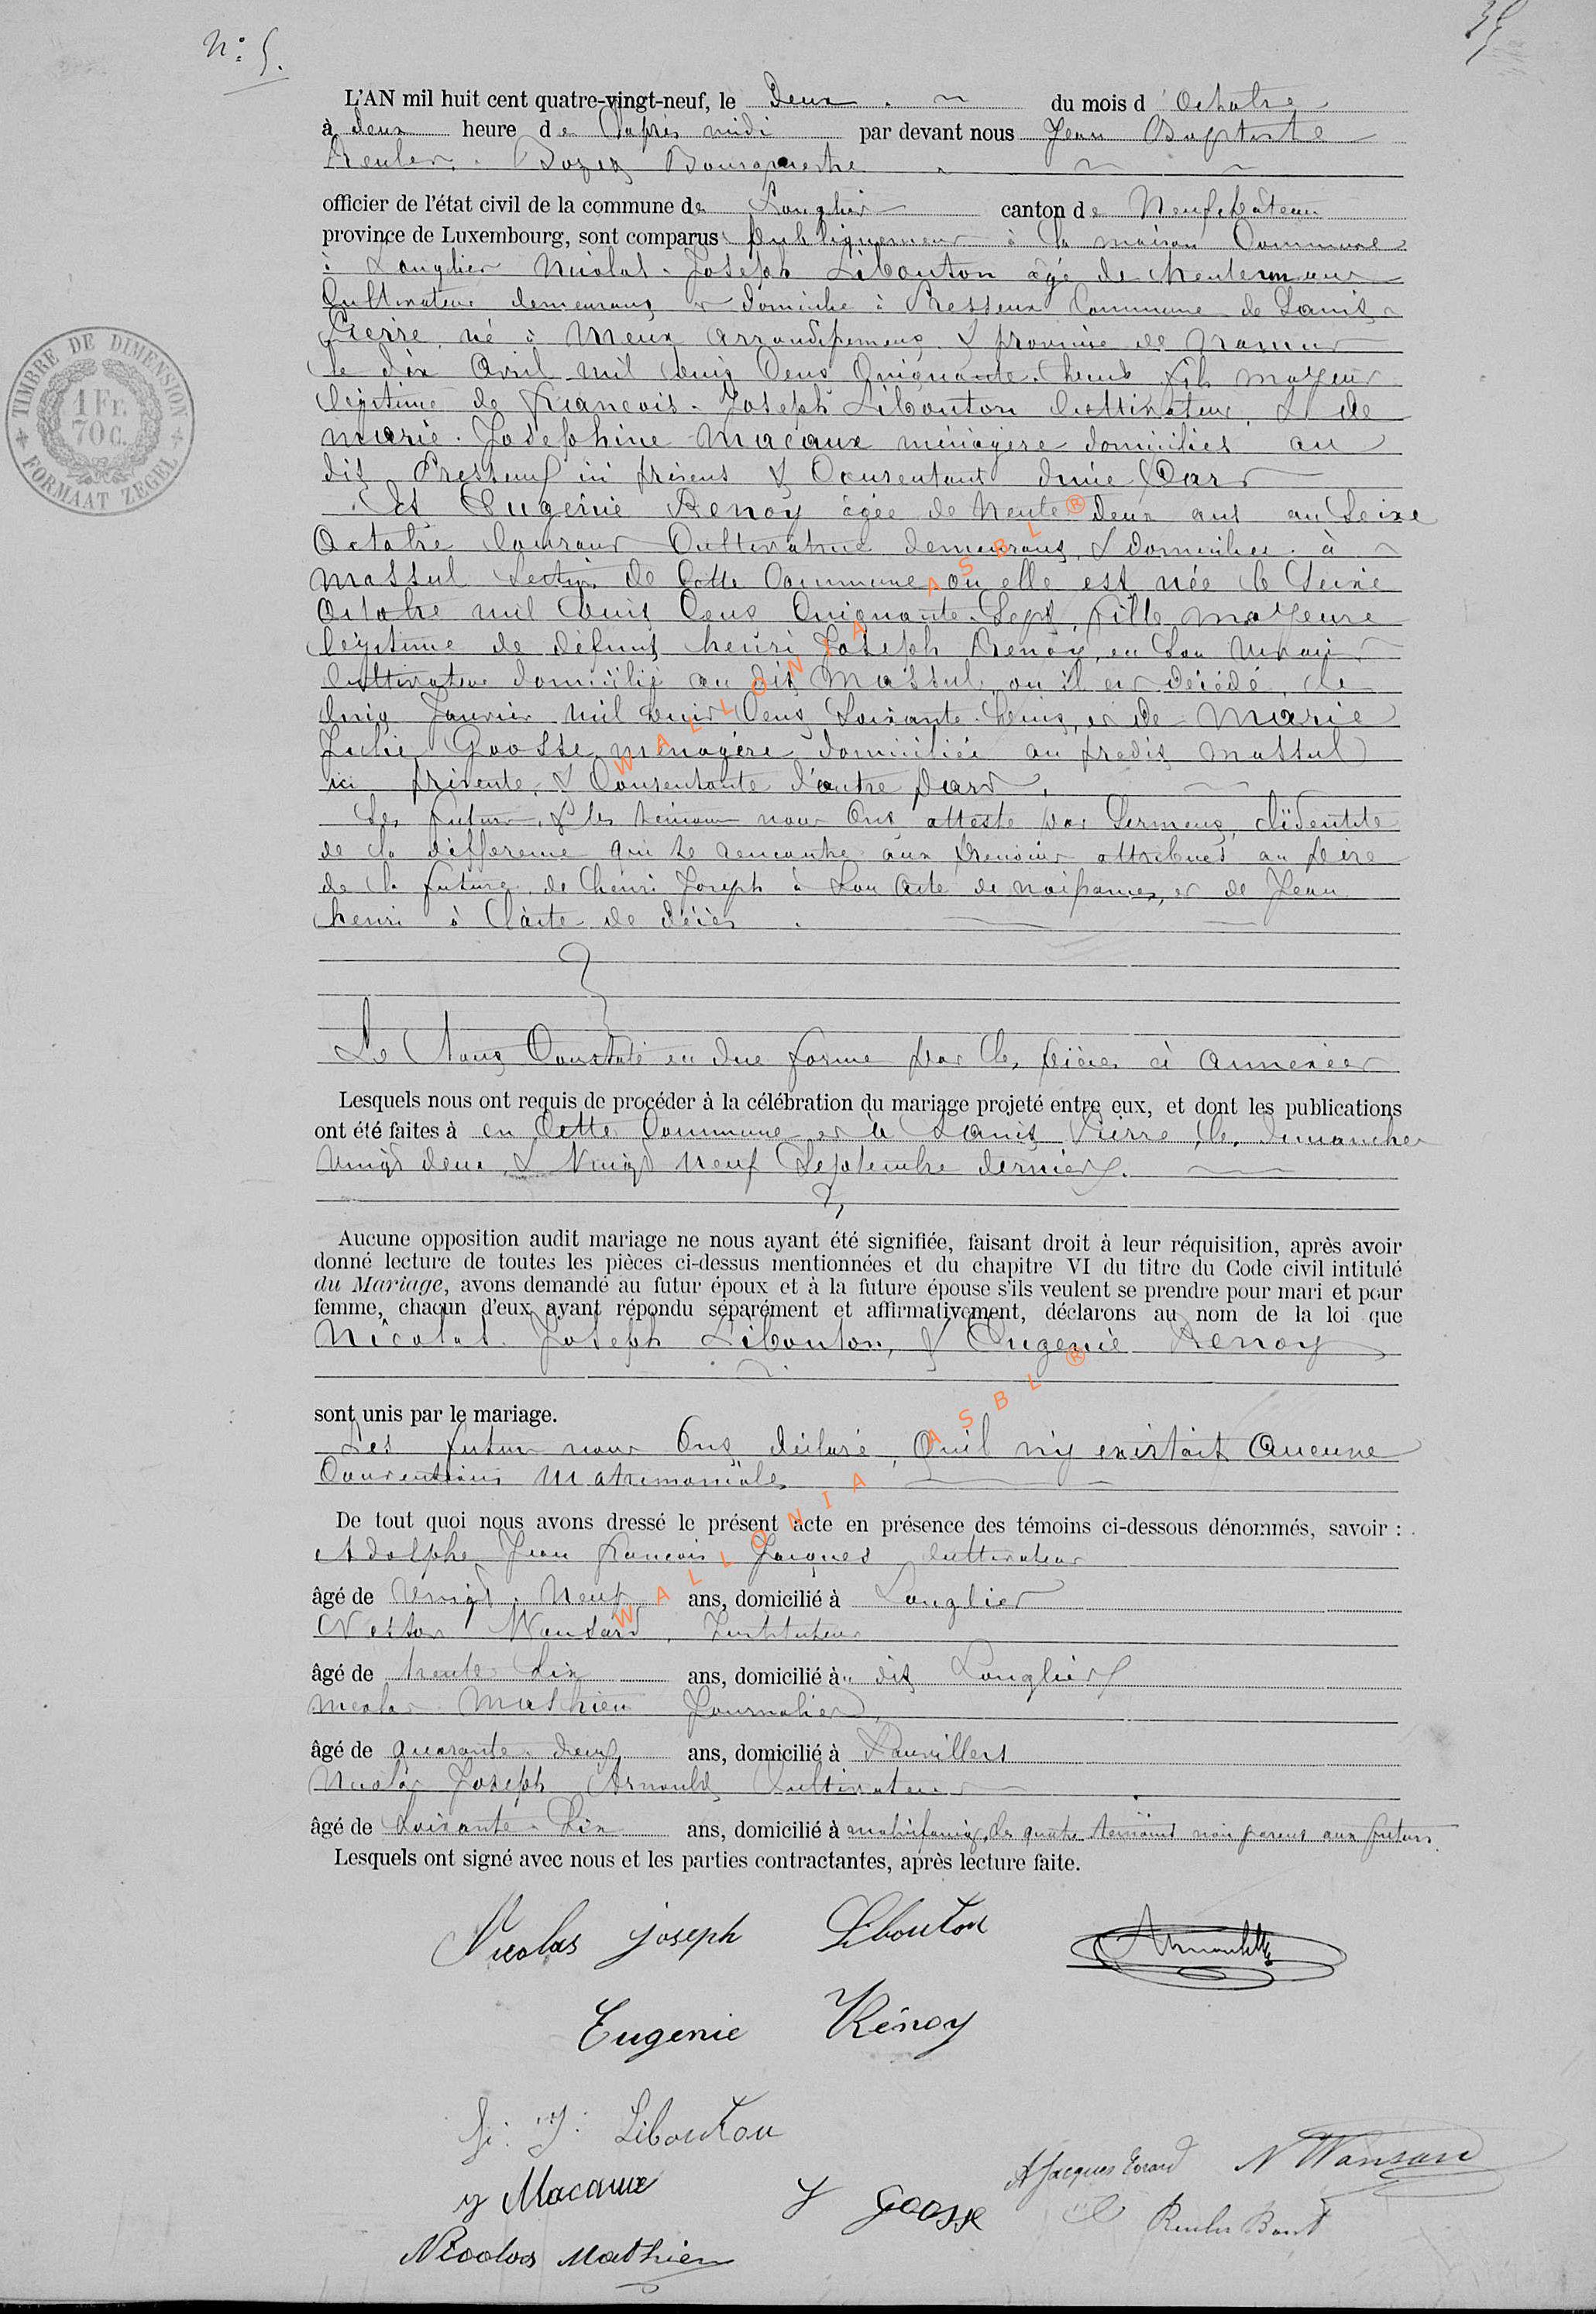 N° 5.
L'AN mil huit cent quatre-vingt-neuf, le deux du mois d'Octobre
à deux heure de l'après midi par devant nous Jean Baptiste
Reuler, Bourgmestre
officier de l'état civil de la commune de Longlier canton de Neufchâteau
province de Luxembourg, sont comparus publiquement à la maison Commune
à Longlier Nicolas-Joseph Libouton âgé de trente un ans
Cultivateur demeurant et domicilié à Presseux Commune de Saint
Pierre, né à Meux arrondissement & province de Namur
le dix Avril mil huit Cent Cinquante-huit fils majeur
légitime de François-Joseph Libouton Cultivateur & de
Marie-Joséphine Macaux ménagère domiciliés au
dit Presseux ici présents & Consentant d'une Part
Et Eugénie Renoy âgée de trente deux ans au Seize
Octobre Courant Cultivatrice demeurant & domiciliée à
Massul Section de Cette Commune où elle est née le Seize
Octobre mil huit Cent Cinquante-Sept, fille majeure
légitime de défunt henri Joseph Renoy, en Son vivant
Cultivateur domicilié au dit Massul, où il est décédé, le
Cinq Janvier mil huit Cent Soixante-huit, et de Marie
Julie Goosse ménagère domiciliée au predit Massul
ici présente, & Consentante d'autre part,
Les futurs & les témoins nous Ont attesté par Serment, l'identité
de la différence qui se rencontre aux prénoms attribués au père
de la future, de henri Joseph à Son acte de naissance, et de Jean
henri à l'acte de décès
Le tout Constaté en due forme par les pièces ci annexées
Lesquels nous ont requis de procéder à la célébration du mariage projeté entre eux, et dont les publications
ont été faites à en Cette Commune et à Saint Pierre, les dimanches
vingt deux & vingt neuf Septembre derniers.
Aucune opposition audit mariage ne nous ayant été signifiée, faisant droit à leur réquisition, après avoir
donné lecture de toutes les pièces ci-dessus mentionnées et du chapitre VI du titre du Code civil intitulé
du Mariage, avons demandé au futur époux et à la future épouse s'ils veulent se prendre pour mari et pour
femme, chacun d'eux ayant répondu séparément et affirmativement, déclarons au nom de la loi que
Nicolas-Joseph Libouton, & Eugénie Renoy
sont unis par le mariage.
Les futurs nous Ont déclaré, Qu'il n'y existait Aucune
Conventions Matrimoniale
De tout quoi nous avons dressé le présent acte en présence des témoins ci-dessous dénommés, savoir :
Adolphe Jean François Jacques Cultivateur
âgé de vingt-neuf ans, domicilié à Longlier
Nestor Wansard, Instituteur
âgé de trente Six ans, domicilié à u dit Longlier
Nicolas Mathieu Journalier,
âgé de quarante-deux ans, domicilié à Fauvillers
Nicolas Joseph Arnould Cultivateur
âgé de Soixante-Dix ans, domicilié à Les quatre témoins non parent aux futurs.
Lesquels ont signé avec nous et les parties contractantes, après lecture faite.
Nicolas joseph Libouton Arnould
Eugenie Rénoy
J. Libouton
Macaux J Goosse AJacques N Wansard
Nicolas Mathieu Reuler
TIMBRE DE DIMENSION
1 Fr.
70 C.
FORMAAT ZEGEL
WALLONIA ASBL ®
WALLONIA ASBL ®